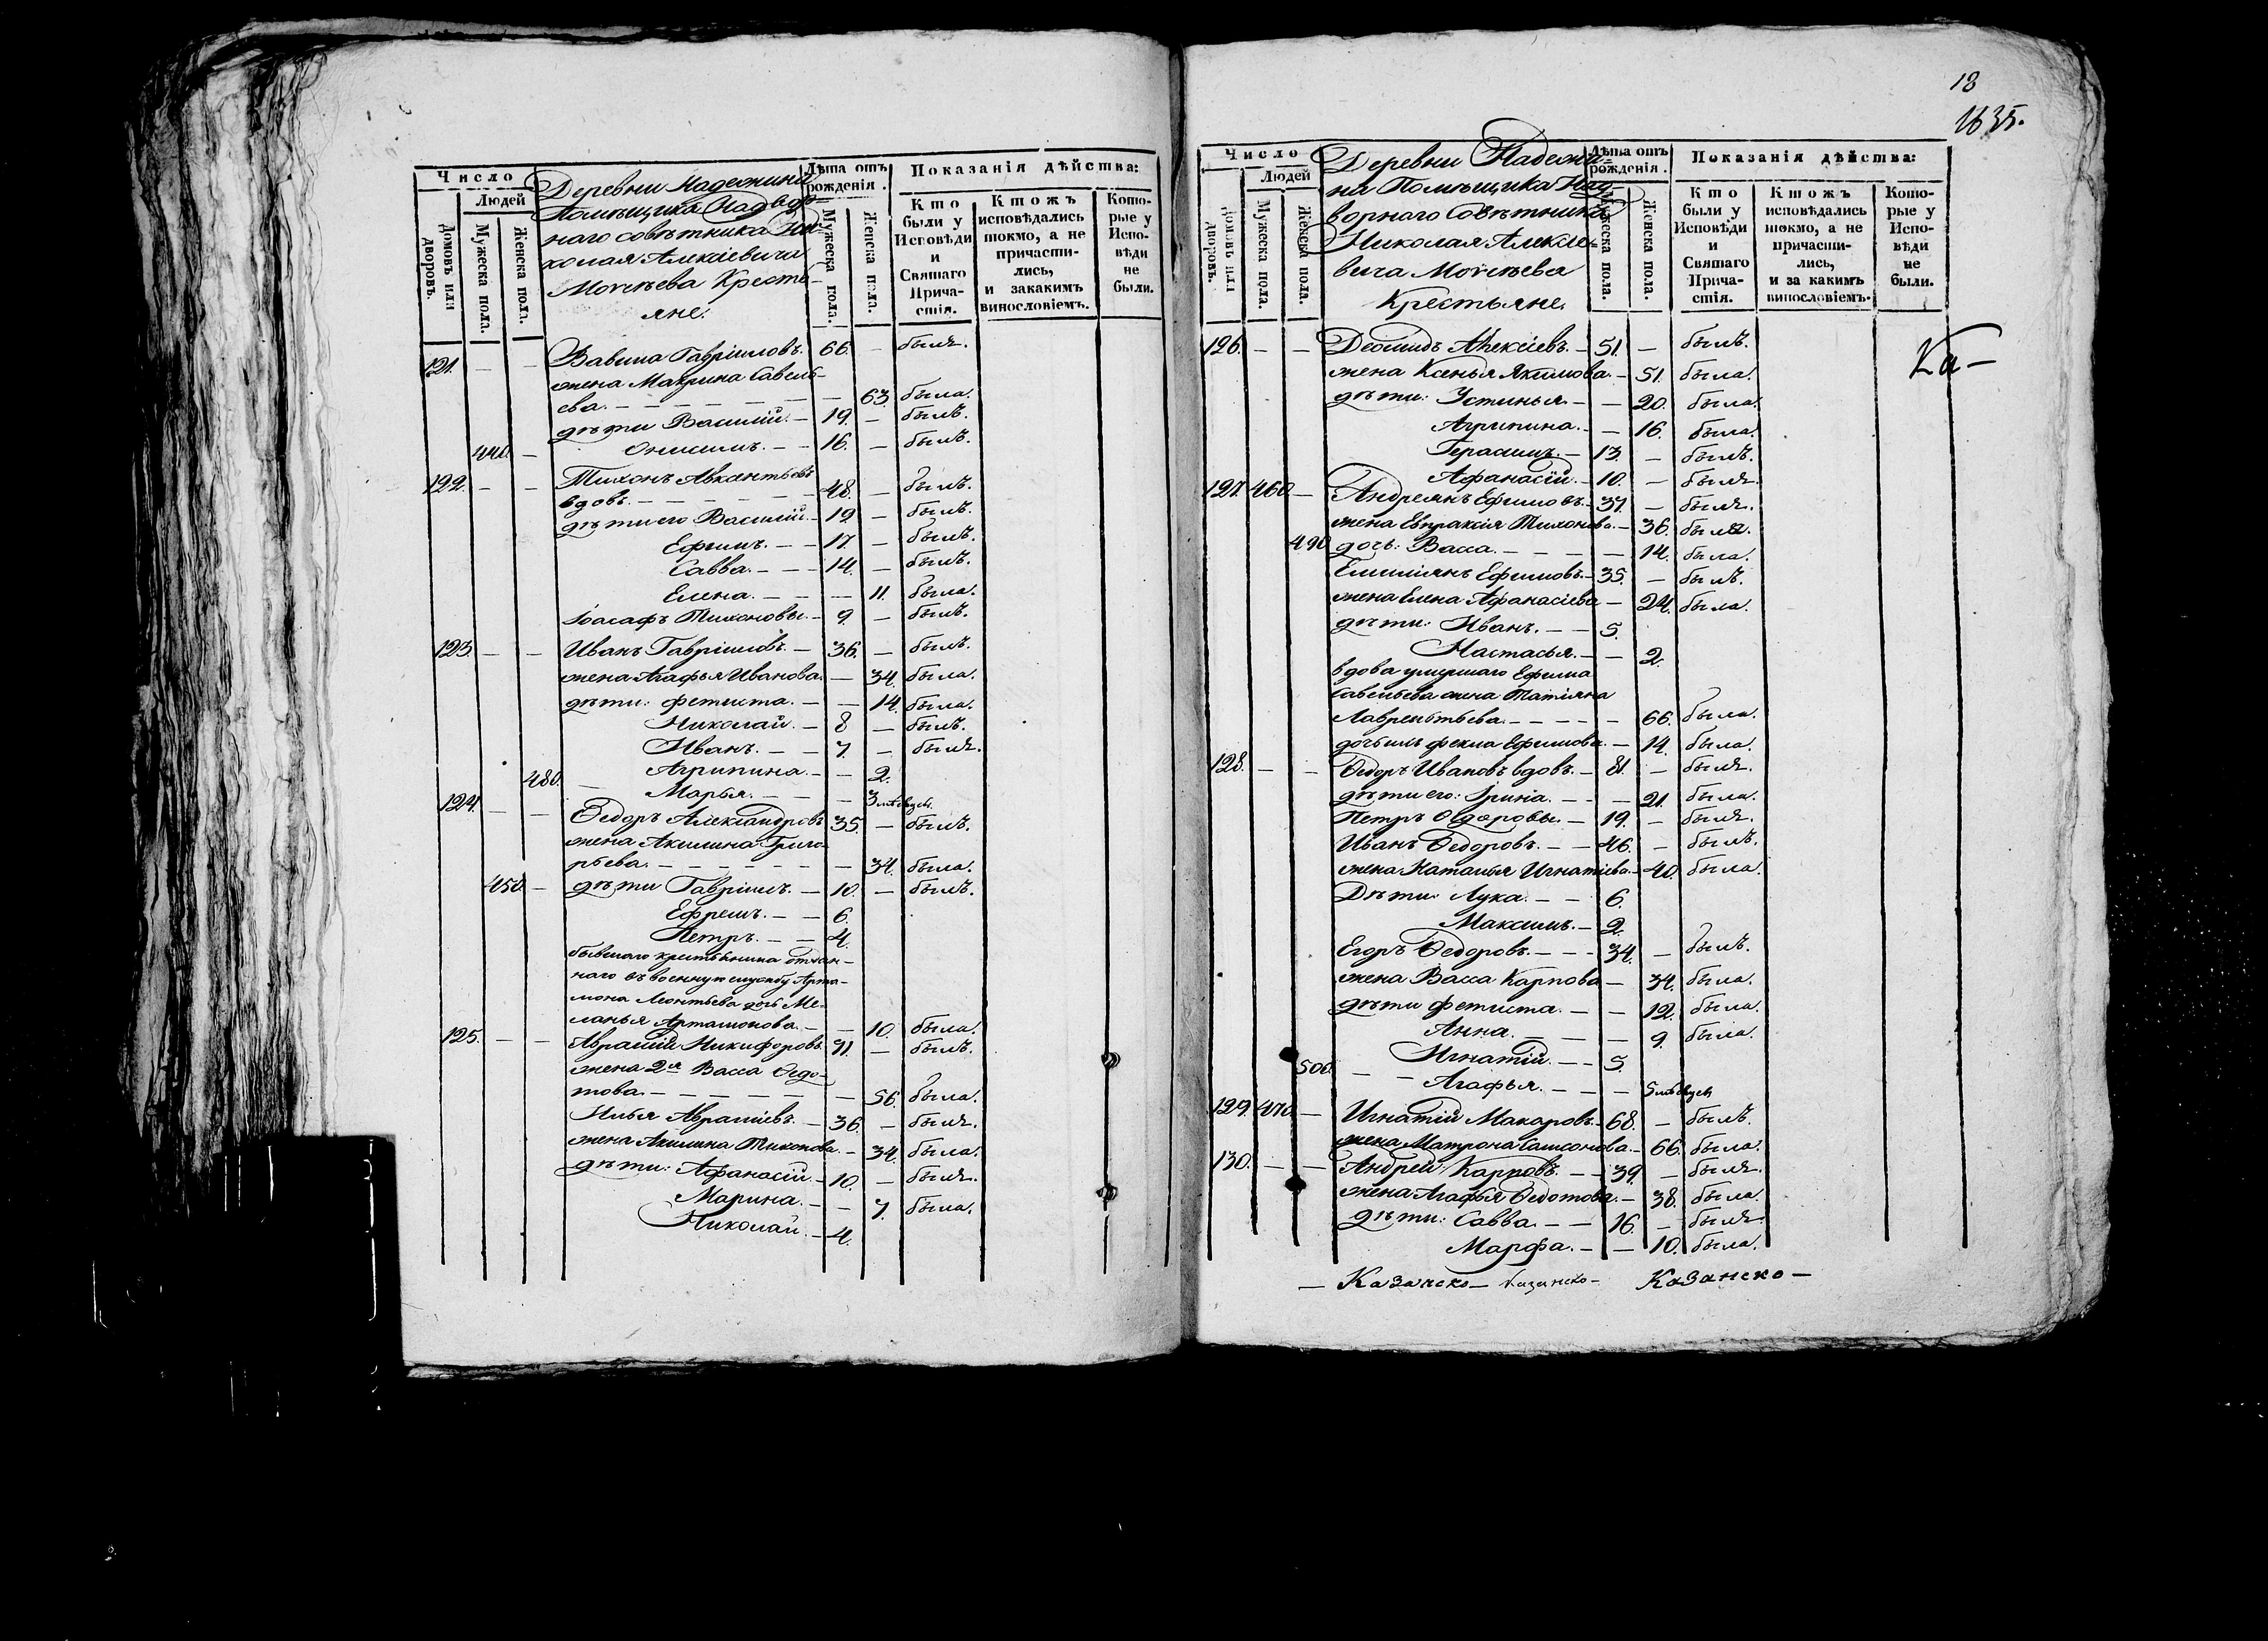 Число
Людей
Домовъ или дворовъ.
Мужеска пола.
Женска пола.
Деревни Надежина
Помѣщика Надвор=
наго совѣтника Ни=
колая Алексіевича
Крестья=
яне.
Лѣта отъ рожденія.
Мужеска пола.
Женска пола.
Показанія дѣйства:
Кто были у Исповѣди и Святаго Причастія.
Ктожъ исповѣдались токмо, а не причастились, и закакимъ винословіемъ.
Которые у Исповѣди не были.
121. — — Вавила Гавріиловъ. 66. — былъ.
жена Макрина Савель-
ева. — 63. была.
дѣти Василій. — 19. — былъ.
440. — Онисимъ. — 16. — былъ.
122. — — Тихонъ Авксентьевъ
вдовъ. — 48. — былъ.
дѣти его Василій. — 19. — былъ.
Ефимъ. — 17. — былъ.
Савва. — 14. — былъ.
Елена. — — 11. была.
Іоасафъ Тихоновы. — 9. — былъ.
123. — — Иванъ Гавріиловъ. — 36. — былъ.
жена Агафья Иванова. — 34. была.
дѣти: Фетиста. — — 14. была.
Николай. — 8 — былъ.
Иванъ. — 7. — былъ.
Агрипина. — — 2.
480. — Марья. — — 3
124. — — Ѳедоръ Александровъ 35. — былъ.
жена Акилина Григо-
рьева. — 34. была.
450. — дѣти Гавріилъ. — 10. — былъ.
Ефремъ. — 6.
Петръ. — 4.
бывшаго крестьянина отдан-
наго въ военную службу Арта-
мона Леонтьева дочь Ме-
ланья Артамонова. — — 10. была.
125. — — Аврамій Никифоровъ 71. — былъ.
жена 2я Васса Ѳедо-
това. — 56. была.
Илья Авраміевъ. — 36. — былъ.
жена Акилина Тихонова. — 34. была.
дѣти: Афанасій. — 10. — былъ.
Марина. — — 7. была.
Николай. — 4.
18
1635.
Число
Людей
Домовъ или дворовъ.
Мужеска пола.
Женска пола.
Деревни Надежи=
на Помѣщика Над=
ворнаго Совѣтника
Николая Алексіе-
вича
Крестьяне.
Лѣта отъ рожденія.
Мужеска пола.
Женска пола.
Показанія дѣйства:
Кто были у Исповѣди и Святаго Причастія.
Ктожъ исповѣдались токмо, а не причастились, и за какимъ винословіемъ.
Которые у Исповѣди не были.
Ка—
126. — — Деомидъ Алексіевъ. — 51. — былъ.
жена Ксенья Якимова. — 51. была.
дѣти: Устинья. — — 20. была.
Агрипина. — — 16. была.
Герасимъ. — 13. — былъ.
Афанасій. — 10. — былъ.
127. 460 — Андреянъ Ефимовъ. — 37. — былъ.
жена Евпраксія Тихонова. — 36. была.
490 дочь: Васса. — — 14. была.
Емилiянъ Ефимовъ. — 35. — былъ.
жена Елена Афанасіева — 24. была.
дѣти: Иванъ. — 5.
Настасья. — — 2.
вдова умершаго Ефима
Савельева жена Татіяна
Лаврентьева. — — 66. была.
дочь ихъ Фекла Ефимова. — 14. была.
128. — — Ѳедоръ Ивановъ вдовъ. — 81. — былъ.
дѣти его: Ірина. — — 21. была.
Петръ Ѳедоровы. — 19. — былъ.
Иванъ Ѳедоровъ. — 46. — былъ.
жена Наталья Игнатіева. — 40. была.
Дѣти: Лука. — 6.
Максимъ. — 2.
Егоръ Ѳедоровъ. — 34. — былъ.
жена Васса Карпова — 34. была.
дѣти Фетиста. — — 12. была.
Анна. — — 9. была.
Игнатій. — 5.
500. — Агафья. — — 5
129. 470. — Игнатій Макаровъ. 68. — былъ.
жена Матрона Самсонова. — 66. была.
130. — — Андрей Карповъ. — 39. — былъ.
жена Агафья Ѳедотова. — 38. была.
Дѣти: Савва. — 16. — былъ.
Марфа. — — 10. была.
— Казанско — Казанско — Казанско —